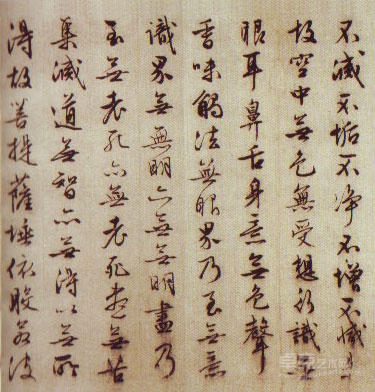 不滅不垢不淨不增不減是
故空中無色無受想行識無
眼耳鼻舌身意無色聲
香味觸法無眼界乃至無意
識界無無明亦無無明盡乃
至無老死亦無老死盡無苦
集滅道無智亦無得以無所
得故菩提薩埵依般若波